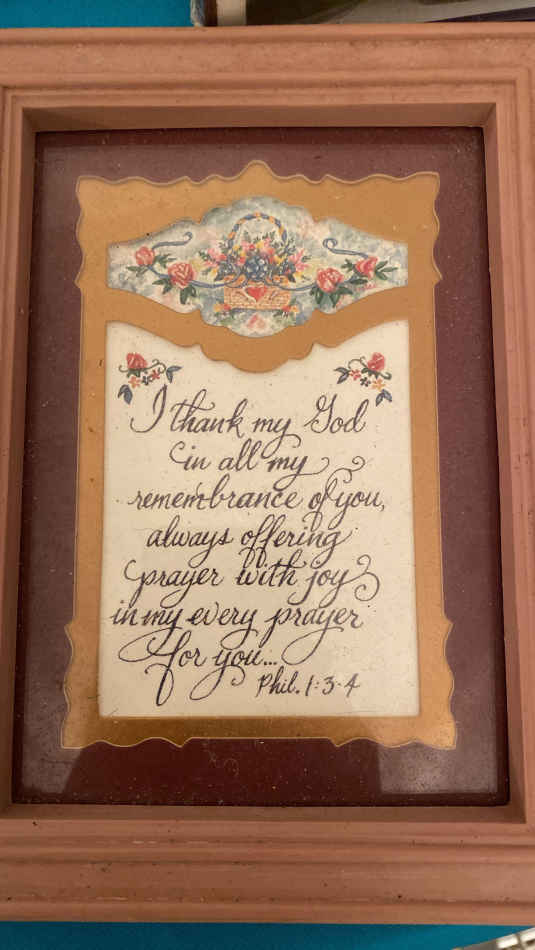 I thank my God
in all my
remembrance of you,
always offering
prayer with joy
in my every prayer
for you...
Phil. 1:3-4